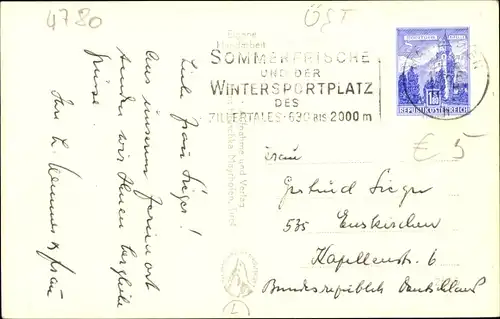 4780
ÖST
SOMMERFRISCHE
UND DER
WINTERSPORTPLATZ
DES
ZILLERTALES · 630 BIS 2000 m
REPUBLIK ÖSTERREICH
€ 5
Eigene
Handarbeit
Mayrhofen, Tirol
Liebe Frau Sieger!
Aus unserem Ferienort
senden wir Ihnen herzliche
Grüsse
Frau
Gertrud Sieger
535 Euskirchen
Kapellenstr. 6
Bundesrepublik Deutschland
L